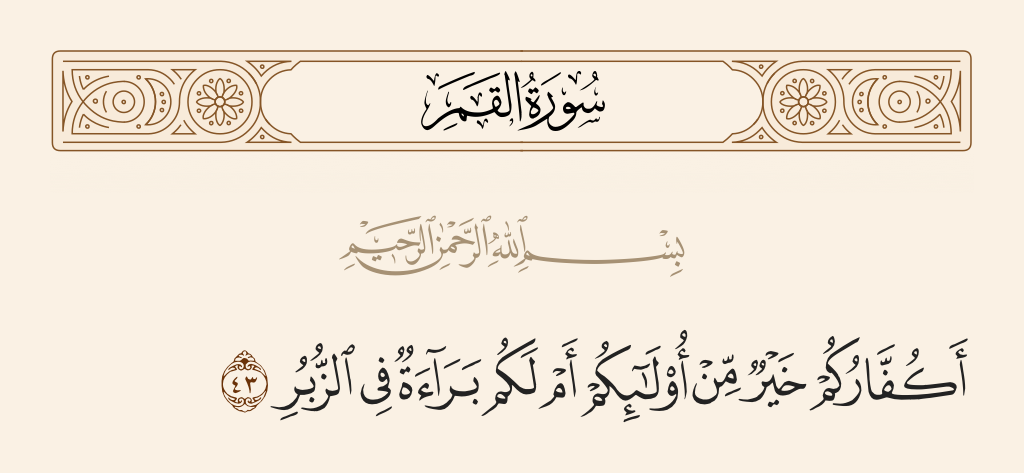 سُورَةُ القَمَرِ
بِسْمِ ٱللَّهِ ٱلرَّحْمَٰنِ ٱلرَّحِيمِ
أَكُفَّارُكُمْ خَيْرٌ مِّنْ أُو۟لَـٰٓئِكُمْ أَمْ لَكُم بَرَآءَةٌ فِى ٱلزُّبُرِ ٤٣